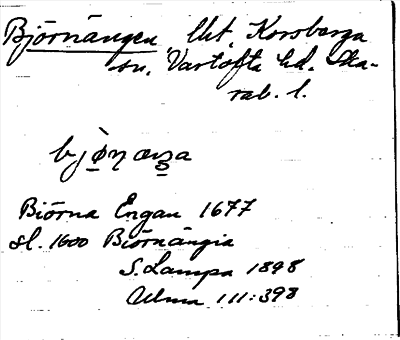 Björnängen lht. Korsberga
sn. Vartofta hd. Ska-
rab. l.
bjö̀ɳ æŋa
Biörna Engan 1677
sl. 1600 Biörnängia
S. Lampa 1898
Ulma 111:398